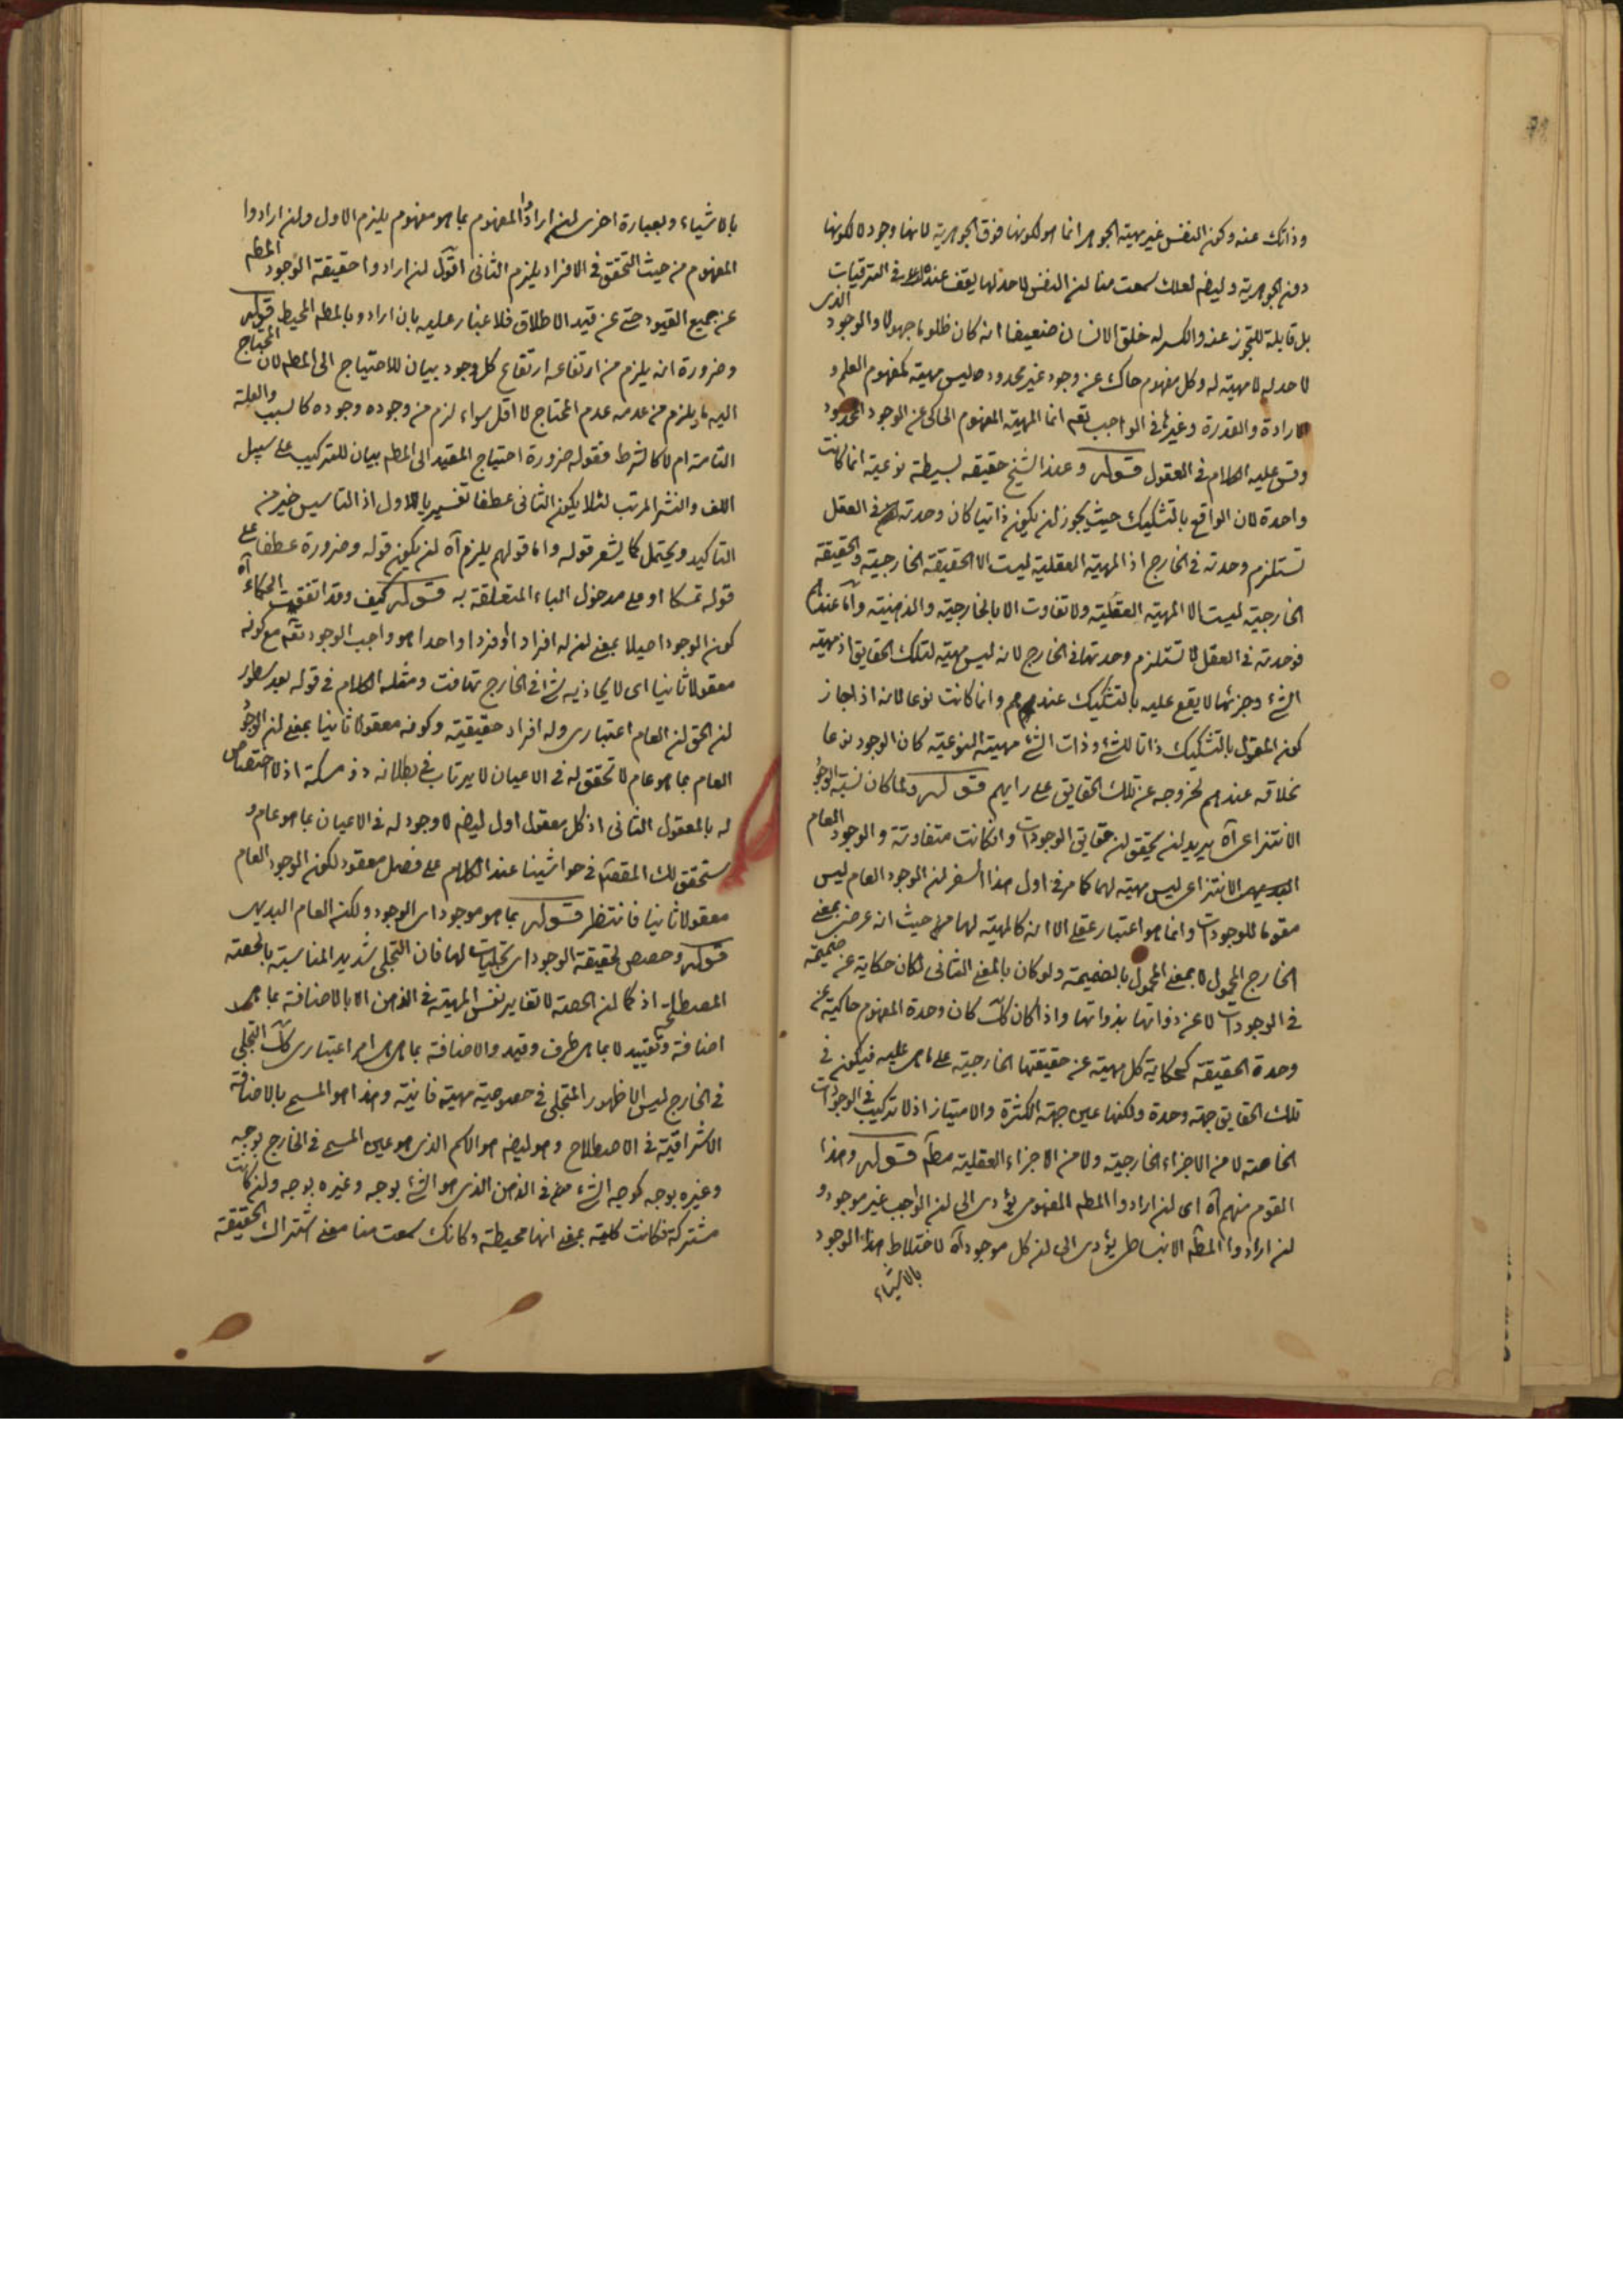 وذاتك عنه وكون النفس غير مهية الجوهر انما هو لكونها فوق الجوهرية لانها وجود لا لكونها
دون الجوهرية وليضم لعلك سمعت منا لن النفس لا حد لها يقف عنده فى الترقيات
بل قابلة للتجوز عنه والكسر له خلق الانسان ضعيفا انه كان ظلوما جهولا والوجود الذى
لا حد له لا مهية له وكل مفهوم حاك عن وجود غير محدود ليس مهية كمفهوم العلم و
الارادة والقدرة وغيرها فى الواجب تعم انما المهية المفهوم الحاكى عن الوجود المحدود
وقس عليه الكلام فى العقول قوله وعند الشيخ حقيقة بسيطة نوعية انما كانت
واحدة لان الواقع بالتشكيك حيث يجوز لن يكون ذاتيا كان وحدته فى العقل
تستلزم وحدته فى الخارج اذ المهية العقلية ليست الا الحقيقة الخارجية والحقيقة
الخارجية ليست الا المهية العقلية ولا تفاوت الا بالخارجية والذهنية واما عندهم
فوحدته فى العقل لا تستلزم وحدتها فى الخارج لانه ليس مهية لتلك الحقايق اذ مهية
الشئ وجزئها لا يقع عليه بالتشكيك عندهم وانما كانت نوعا لانه اذا جاز
كون المقول بالتشكيك ذاتا للشئ وذات الشئ مهية النوعية كان الوجود نوعا
بخلافه عندهم لخروجه عن تلك الحقايق على رايهم قوله ولما كان نسبة الوجود
الانتزاعى آه يريد لن يحقق لن حقايق الوجودات وان كانت متفاوتة والوجود العام
البديهى الانتزاعى ليس مهية لها كما مر فى اول هذا السفر لن الوجود العام ليس
مقوما للوجودات وانما هو اعتبار عقلى الا انه كالمهية لها من حيث انه عرضى بمعنى
الخارج المحمول لا بمعنى المحمول بالضميمة ولو كان بالمعنى الثانى لكان حكاية عن ضميمة
فى الوجودات لا عن ذواتها بذواتها واذا كان كك كان وحدة المفهوم حاكية عن
وحدة الحقيقة كحكاية كل مهية عن حقيقتها الخارجية على ما هى عليه فيكون فى
تلك الحقايق جهة وحدة ولكنها عين جهة الكثرة والامتياز اذ لا تركيب فى الوجودات
الخاصة لا من الاجزاء الخارجية ولا من الاجزاء العقلية مطم قوله وهذا
القوم منهم آه اى لن ارادوا المطم المفهومى يؤدى الى لن الواجب غير موجود و
لن ارادوا المطم الانبساطى يؤدى الى لن كل موجود آه لاختلاط هذا الوجود
بالاشياء
بالاشياء وبعبارة اخرى لن ارادوا المفهوم بما هو مفهوم يلزم الاول ولن ارادوا
المفهوم من حيث التحقق فى الافراد يلزم الثانى اقول لن ارادوا حقيقة الوجود المطم
عن جميع القيود حتى عن قيد الاطلاق فلا غبار عليه بان ارادو بالمطم المحيط قوله
وضرورة انه يلزم من ارتفاعه ارتفاع كل وجود بيان للاحتياج الى المطم لان المحتاج
اليه ما يلزم من عدمه عدم المحتاج لا اقل سواء لزم من وجوده وجوده كالسبب والعلة
التامة ام لا كالشرط فقوله ضرورة احتياج المقيد الى المطم بيان للتركيب على سبيل
اللف والنشر المرتب لئلا يكون الثانى عطفا تفسيريا للاول اذ التاسيس خير من
التاكيد ويحتمل كما يشعر قوله واما قولهم يلزم آه لن يكون قوله وضرورة عطفا على
قوله تمسكا او على مدخول الباء المتعلقة به قوله كيف وقد اتفقت الحكماء آه
كون الوجود اصيلا بمعنى لن له افراد او فردا واحدا هو واجب الوجود تعم مع كونه
معقولا ثانيا اى لا يحاذيه شئ فى الخارج تهافت ومثله الكلام فى قوله بعد سطور
لن الحق لن العام اعتبارى وله افراد حقيقية وكونه معقولا ثانيا بمعنى لن الوجود
العام بما هو عام لا تحقق له فى الاعيان لا يرتاب فى بطلانه ذو مسكة اذ لا اختصاص
له بالمعقول الثانى اذ كل معقول اول ليضم لا وجود له فى الاعيان بما هو عام و
سنحقق لك المقام فى حواشينا عند الكلام على فصل معقود لكون الوجود العام
معقولا ثانيا فانتظر قوله بما هو موجود اى الوجود ولكنه العام البديهى
قوله وحصص لحقيقة الوجود اى تجليات لها فان التجلى شديد المناسبة بالحصة
المصطلحة اذ كما لن الحصة لا تغاير نفس المهية فى الذهن الا بالاضافة بما هى
اضافة وتقييد لا بما هى طرف وقيد والاضافة بما هى هى امر اعتبارى كك التجلى
فى الخارج ليس الا ظهور المتجلى فى خصوصية مهية فانية وهذا هو المسمى بالاضافة
الاشراقية فى الاصطلاح وهو ليضم هو الاسم الذى هو عين المسمى فى الخارج بوجه
وغيره بوجه كوجه الشئ فى الذهن الذى هو الشئ بوجه وغيره بوجه ولن كانت
مشتركة فكانت كلية بمعنى انها محيطة وكانك سمعت منا معنى اشتراك الحقيقة